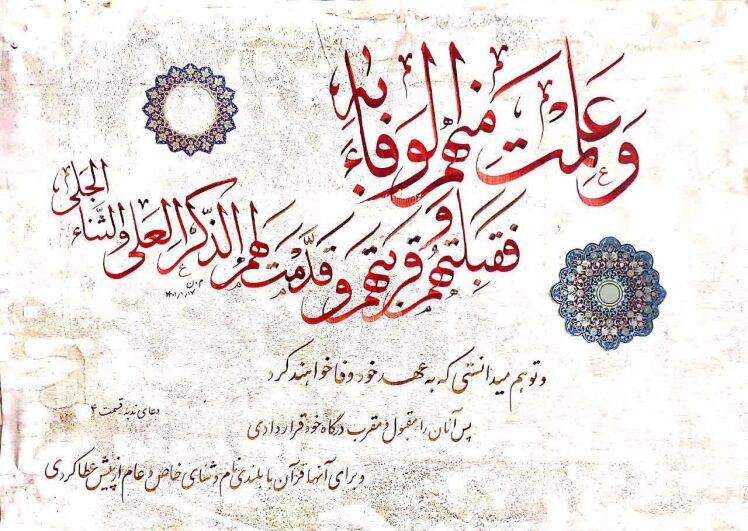 وَعَلِمْتَ مِنْهُمُ الْوَفَاءَ بِهِ
فَقَبِلْتَهُمْ وَ قَرَّبْتَهُمْ وَ قَدَّمْتَ لَهُمُ الذِّكْرَ الْعَلِيَّ وَ الثَّنَاءَ الْجَلِيَّ
و تو هم میدانستی که به عهد خود وفا خواهند کرد
پس آنان را مقبول و مقرب درگاه خود قرار دادی
دعای ندبه قسمت ۴
و برای آنها قرآن با بلندی نام و ثنای خاص و عام از پیش عطا کردی